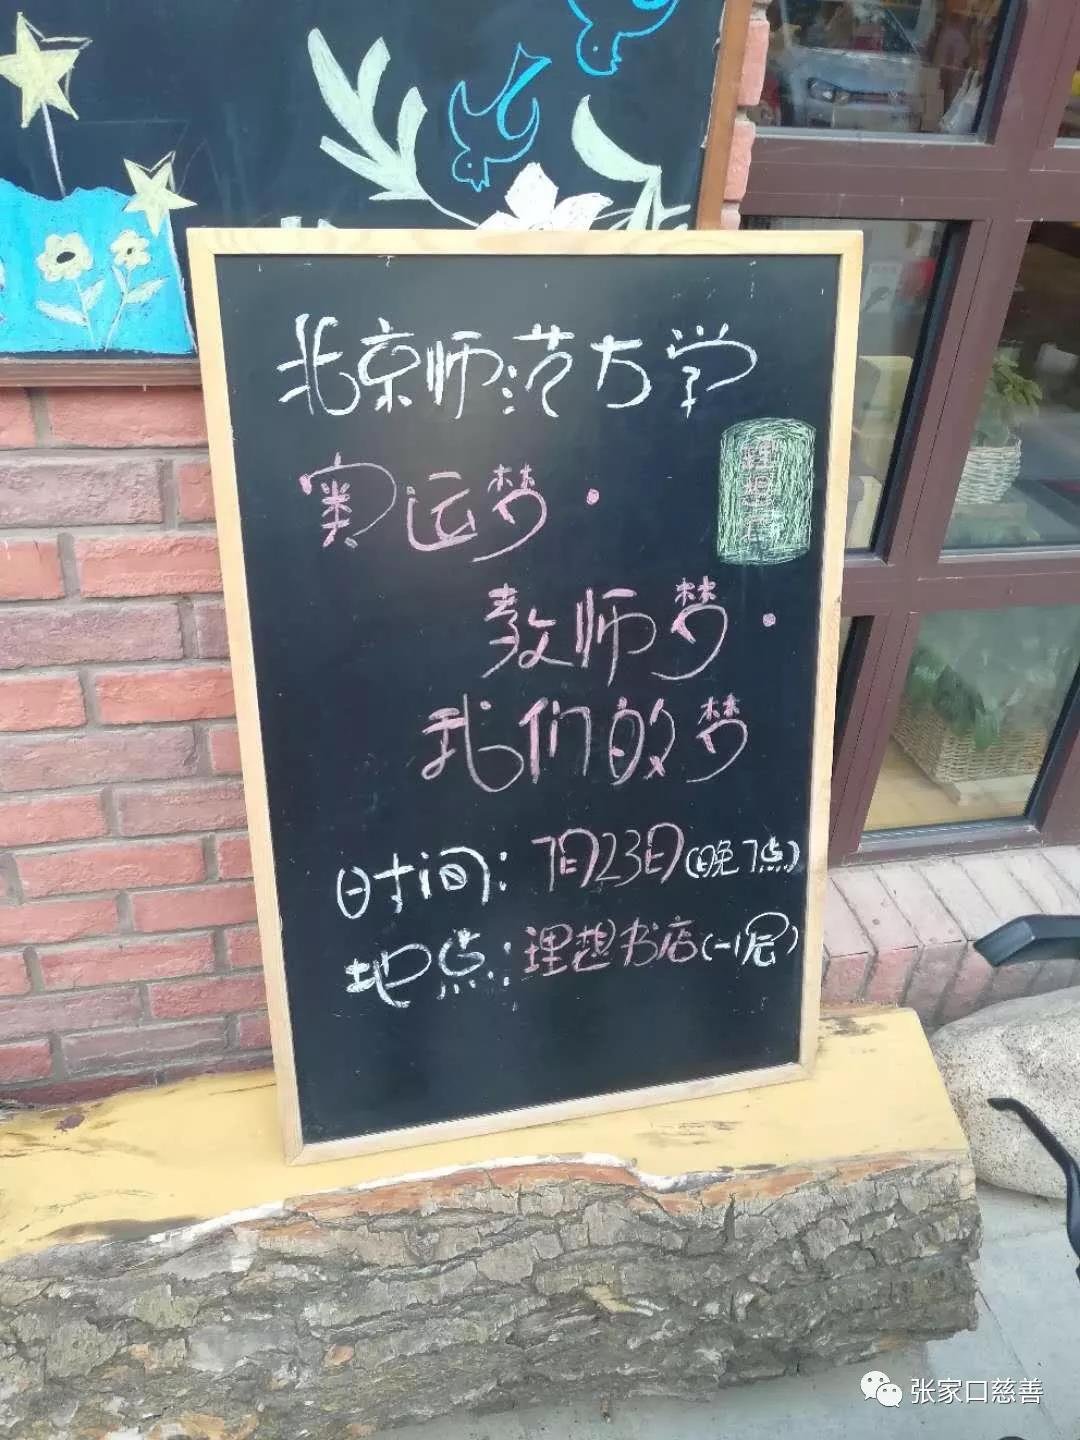 北京师范大学
奥运梦·
理想书店
教师梦·
我们的梦
时间：7月23日（晚7点）
地点：理想书店（一层）
张家口慈善